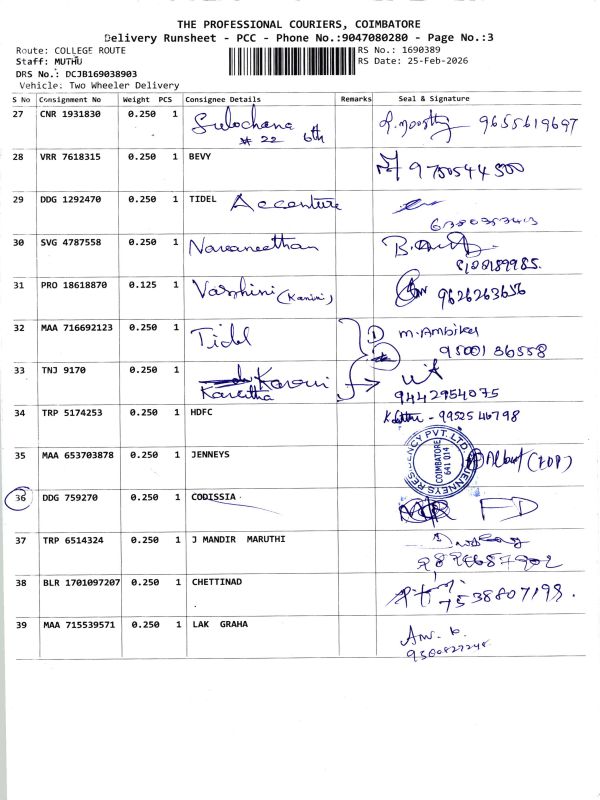 THE PROFESSIONAL COURIERS, COIMBATORE
Delivery Runsheet - PCC - Phone No.:9047080280 - Page No.:3
Route: COLLEGE ROUTE RS No.: 1690389
Staff: MUTHU RS Date: 25-Feb-2026
DRS No.: DCJB169038903
Vehicle: Two Wheeler Delivery
S No Consignment No Weight PCS Consignee Details Remarks Seal & Signature
27 CNR 1931830 0.250 1 Sulochana 9655619697
# 22 6th
28 VRR 7618315 0.250 1 BEVY 9750544500
29 DDG 1292470 0.250 1 TIDEL Accenture
30 SVG 4787558 0.250 1 Navaneethan
31 PRO 18618870 0.125 1 Varshini (Kanini) 9626263656
32 MAA 716692123 0.250 1 Tidel 1 M. Ambika
9500136558
33 TNJ 9170 0.250 1 Kavitha
9442954075
34 TRP 5174253 0.250 1 HDFC 9952546798
35 MAA 653703878 0.250 1 JENNEYS Albert
JENNEYS RESIDENCY PVT. LTD
COIMBATORE
641 014
36 DDG 759270 0.250 1 CODISSIA FD
37 TRP 6514324 0.250 1 J MANDIR MARUTHI
38 BLR 1701097207 0.250 1 CHETTINAD 7538807198.
39 MAA 715539571 0.250 1 LAK GRAHA